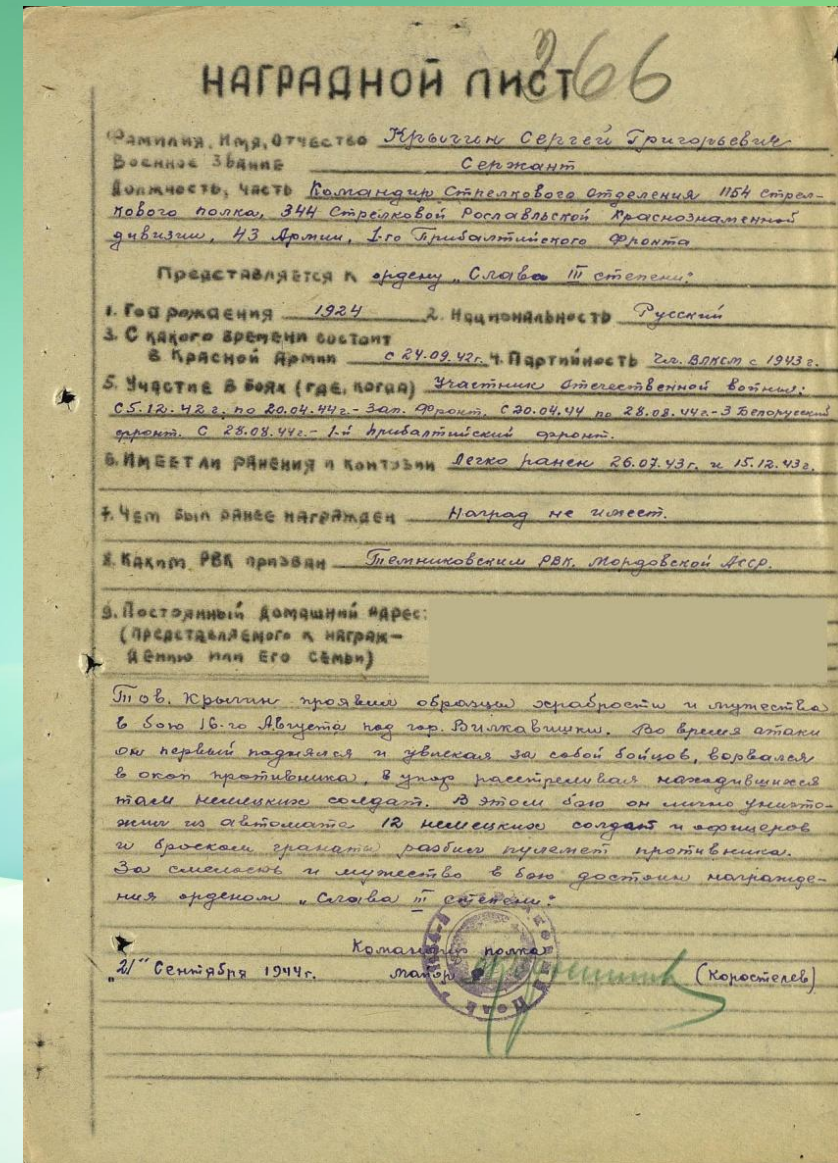 366
НАГРАДНОЙ ЛИСТ
Фамилия, Имя, Отчество Крыгин Сергей Григорьевич
Военное Звание Сержант
Должность, часть Командир Стрелкового отделения 1154 стрел-
кового полка, 344 Стрелковой Рославльской Краснознаменной
дивизии, 43 Армии, 1-го Прибалтийского Фронта
Представляется к ордену „Слава III степени"
1. Год рождения 1924 2. Национальность Русский
3. С какого времени состоит
в Красной Армии с 24.09.42г. 4. Партийность Чл. ВЛКСМ с 1943г.
5. Участие в боях (где, когда) Участник Отечественной войны:
С 5.12.42г. по 20.04.44г. - Зап. Фронт. С 20.04.44 по 28.08.44г. - 3 Белорусский
фронт. С 28.08.44г. - 1-й прибалтийский фронт.
6. Имеет ли ранения и контузии Легко ранен 26.07.43г. и 15.12.43г.
7. Чем был ранее награжден Наград не имеет.
8. Каким РВК призван Темниковским РВК. Мордовской АССР.
9. Постоянный домашний адрес:
(представляемого к награж-
дению или его семьи)
Тов. Крыгин проявил образцы храбрости и мужества
в бою 16-го Августа под гор. Вилкавишки. Во время атаки
он первый поднялся и увлекая за собой бойцов, ворвался
в окоп противника, в упор расстреливая находившихся
там немецких солдат. В этом бою он лично уничто-
жил из автомата 12 немецких солдат и офицеров
и броском гранаты разбил пулемет противника.
За смелость и мужество в бою достоин награжде-
ния орденом „Слава III степени"
Командир полка
„21" Сентября 1944г. майор (Коростелев)